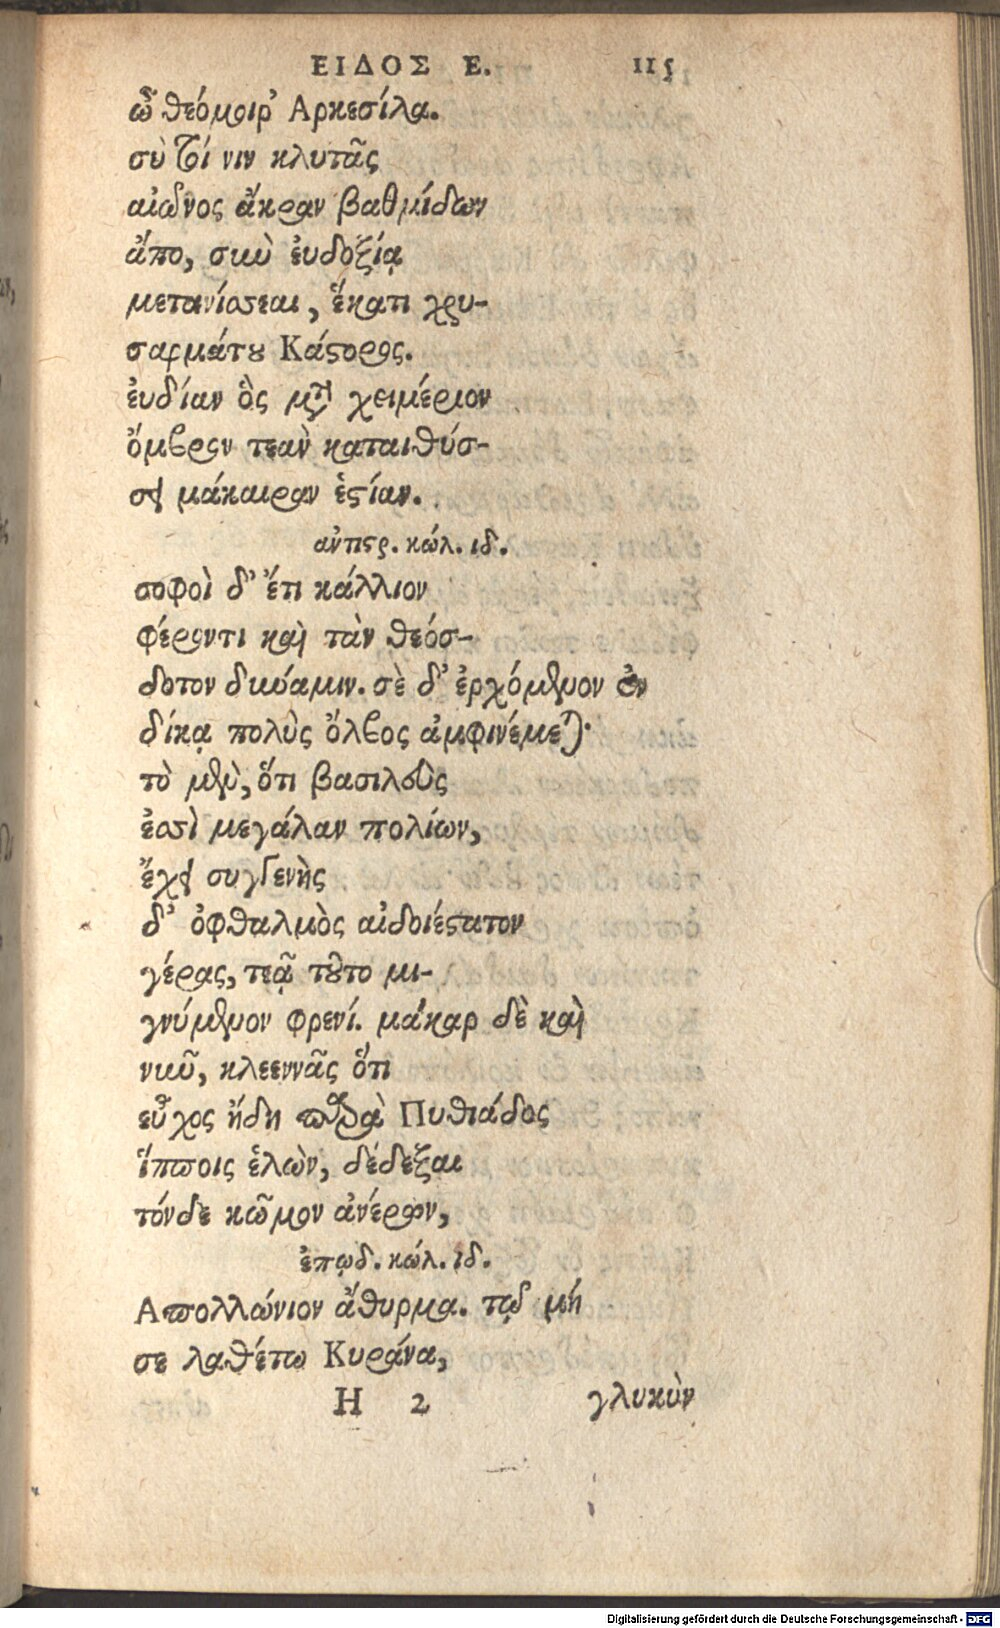 ΕΙΔΟΣ Ε. 115
ὦ θεόμοιρ' Αρκεσίλα.
σὺ τοί νιν κλυτᾶς
αἰῶνος ἄκραν βαθμίδων
ἄπο, σὺν εὐδοξίᾳ
μετανίσσεαι, ἕκατι χρυ-
σαρμάτου Κάστορος.
εὐδίαν ὃς μετὰ χειμέριον
ὄμβρον τεὰν καταιθύσ-
σει μάκαιραν ἑστίαν.
ἀντιστρ. κώλ. ιδ.
σοφοὶ δ' ἔτι κάλλιον
φέροντι καὶ τὰν θεόσ-
δοτον δύναμιν. σὲ δ' ἐρχόμενον ἐν
δίκᾳ πολὺς ὄλβος ἀμφινέμεται·
τὸ μὲν, ὅτι βασιλεὺς
ἐσσὶ μεγάλαν πολίων,
ἔχει συγγενὴς
δ' ὀφθαλμὸς αἰδοιέστατον
γέρας, τεᾷ τοῦτο μι-
γνύμενον φρενί. μάκαρ δὲ καὶ
νῦν, κλεεννᾶς ὅτι
εὖχος ἤδη παρὰ Πυθιάδος
ἵπποις ἑλὼν, δέδεξαι
τόνδε κῶμον ἀνέρων,
ἐπῳδ. κώλ. ιδ.
Απολλώνιον ἄθυρμα. τῷ μή
σε λαθέτω Κυράνα,
H 2 γλυκὺν
Digitalisierung gefördert durch die Deutsche Forschungsgemeinschaft - DFG